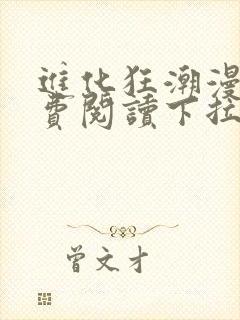 進化狂潮漫
費閱讀下拉
曾文才